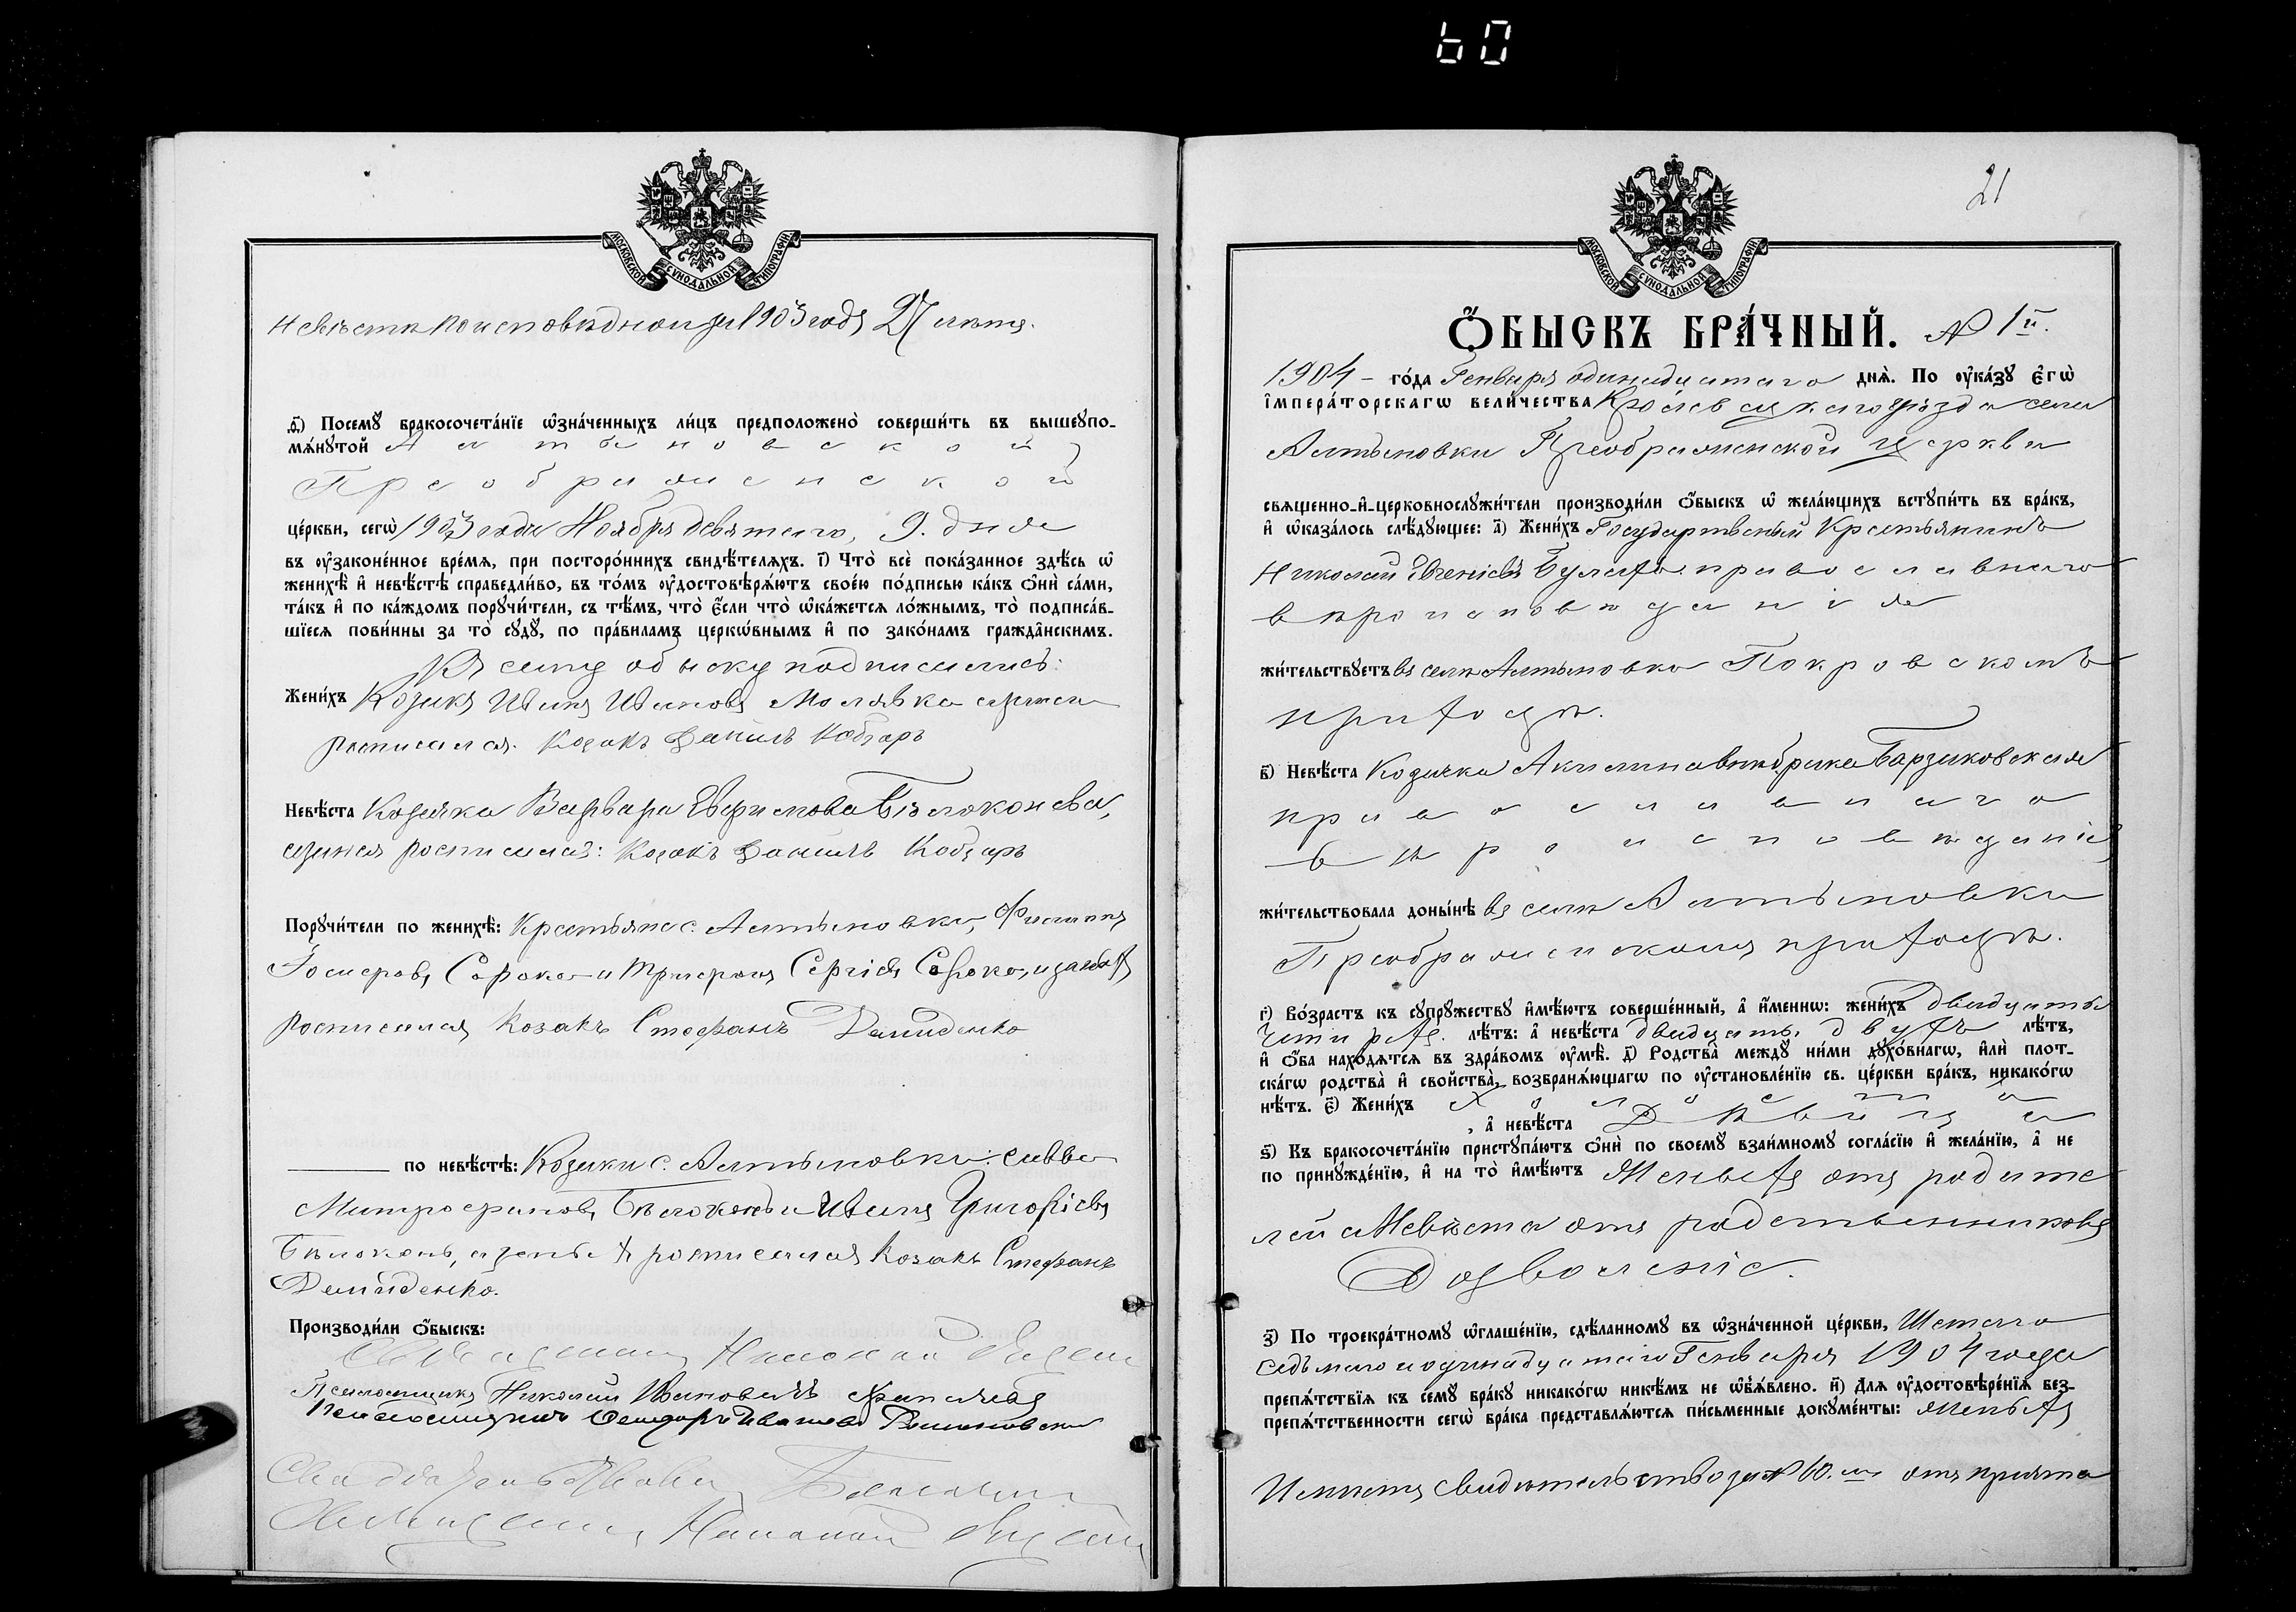 60
МОСКОВСКОЙ СѴНОДАЛЬНОЙ ТИПОГРАФІИ
невѣста по исповѣдной за 1903 годъ 27 лѣтъ.
д҃і) Посемꙋ̀ бракосочета́нїе ѡ҆зна́ченныхъ ли́цъ предположено̀ соверши́ть въ вышеꙋпо-
мѧ́нꙋтой Алтыновской
Преображенской
це́ркви, сегѡ̀ 1903 года Ноября девятаго, 9. дня
въ ᲂу҆зако́ненное вре́мѧ, при посторо́ннихъ свидѣ́телѧхъ. і҃) Что̀ всѐ пока́занное здѣ́сь ѡ҆
женихѣ̀ и҆ невѣ́стѣ справедли́во, въ то́мъ ᲂу҆достовѣрѧ́ютъ свое́ю по́дписью ка́къ ѻ҆нѝ са́ми,
та́къ и҆ по ка́ждомъ порꙋчи́тели, съ тѣ́мъ, что̀ є҆́сли что̀ ѡ҆ка́жетсѧ ло́жнымъ, то̀ подписа́в-
шїесѧ пови́нны за то̀ сꙋдꙋ̀, по пра́виламъ церко́внымъ и҆ по зако́намъ гражда́нскимъ.
Къ сему обыску подписались:
Жени́хъ Козакъ Иванъ Ивановъ Молявка а за него
росписался. Козакъ Данилъ Кобзарь
Невѣ́ста Козачка Варвара Евфимова Бѣлоконева,
а за нея росписался: Козакъ Данилъ Кобзарь
Порꙋчи́тели по женихѣ̀: Крестьяне с. Алтыновки, Филиппъ
Сорока и Трифонъ Сергіевъ Сорока, и за нихъ
росписался Козакъ Стефанъ Демиденко
по невѣ́стѣ: Козаки с. Алтыновки: Савва
Митрофановъ Бѣлоконь и Иванъ Григоріевъ
Бѣлоконь, а за нихъ росписался Козакъ Стефанъ
Демиденко.
Производи́ли ѻ҆́быскъ:
Священникъ Николай
Псаломщикъ Николай Ивановичъ
Псаломщикъ
Священникъ Николай
21
МОСКОВСКОЙ СѴНОДАЛЬНОЙ ТИПОГРАФІИ
Ѻ҆́БЫСКЪ БРА́ЧНЫЙ. № 1й.
1904 – го́да Генваря одинадцатаго днѧ̀. По ᲂу҆ка́зꙋ є҆гѡ̀
і҆мпера́торскагѡ вели́чества Кролевецкаго уѣзда села
Алтыновки Преображенской церкви
свѧще́нно-и҆-церковнослꙋжи́тели производи́ли ѻ҆́быскъ ѡ҆ жела́ющихъ встꙋпи́ть въ бра́къ,
и҆ ѡ҆каза́лось слѣ́дꙋющее: а҃) Жени́хъ Государственный Крестьянинъ
Николай Евгеніевъ православнаго
вѣроисповѣданія
жи́тельствꙋетъ въ селѣ Алтыновкѣ Покровскомъ
приходѣ.
в҃) Невѣ́ста Козачка Акилина Барзиковская
православнаго
вѣроисповѣданія
жи́тельствовала доны́нѣ въ селѣ Алтыновки
Преображенскомъ приходѣ.
г҃) Во́зрастъ къ сꙋпрꙋ́жествꙋ и҆мѣ́ютъ соверше́нный, а҆ и҆́меннѡ: жени́хъ двадцать
четирехъ. лѣ́тъ: а҆ невѣ́ста двадцать двухъ лѣ́тъ,
и҆ ѻ҆́ба нахо́дѧтсѧ въ здра́вомъ ᲂу҆мѣ̀. д҃) Родства̀ междꙋ̀ ни́ми дꙋхо́внагѡ, и҆лѝ плот-
ска́гѡ родства̀ и҆ свойства̀, возбранѧ́ющагѡ по ᲂу҆становле́нїю св. це́ркви бра́къ, никако́гѡ
нѣ́тъ. є҃) Жени́хъ Холостъ
, а҆ невѣ́ста Дѣвица
ѕ҃) Къ бракосочета́нїю пристꙋпа́ютъ ѻ҆нѝ по своемꙋ̀ взаи́мномꙋ согла́сїю и҆ жела́нїю, а҆ не
по принꙋжде́нїю, и҆ на то̀ и҆мѣ́ютъ Женихъ отъ родите
лей а Невѣста отъ родственниковъ
Дозволеніе.
з҃) По троекра́тномꙋ ѡ҆глаше́нїю, сдѣ́ланномꙋ въ ѡ҆зна́ченной це́ркви, Шестаго
седьмаго и одинадцатаго Генваря 1904 года
препѧ́тствїѧ къ семꙋ̀ бра́кꙋ никако́гѡ никѣ́мъ не ѡ҆бъѧ́влено. и҃) Длѧ ᲂу҆достовѣре́нїѧ без-
препѧ́тственности сегѡ̀ бра́ка представлѧ́ютсѧ пи́сьменные докꙋме́нты: Женихъ
Имѣетъ свидѣтельство за № 10.мъ отъ